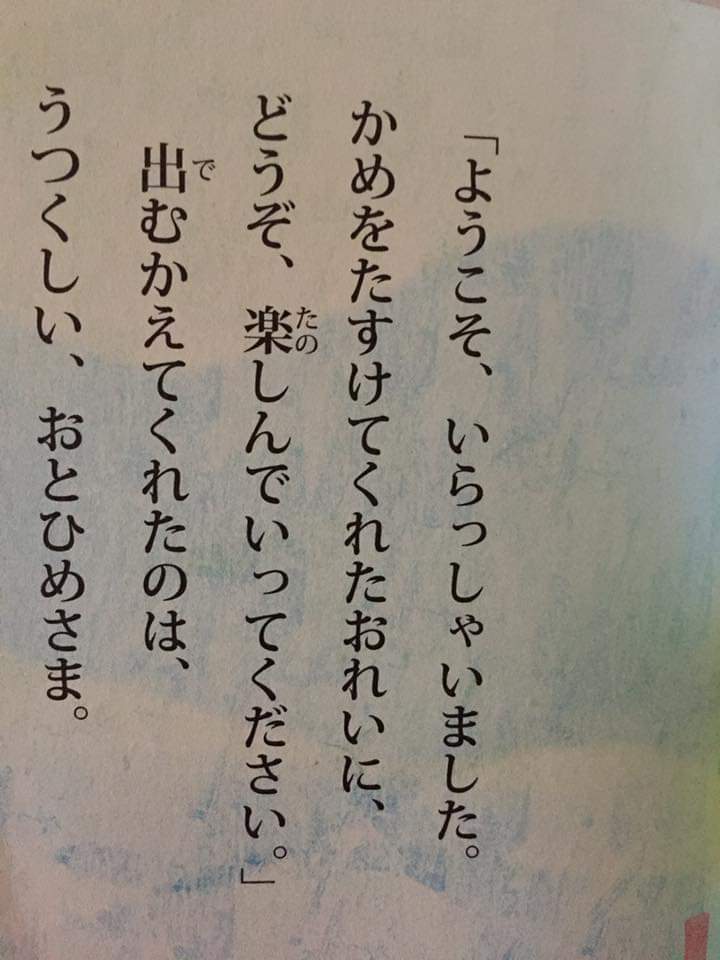 「ようこそ、いらっしゃいました。
かめをたすけてくれたおれいに、
どうぞ、楽しんでいってください。」
出むかえてくれたのは、
うつくしい、おとひめさま。